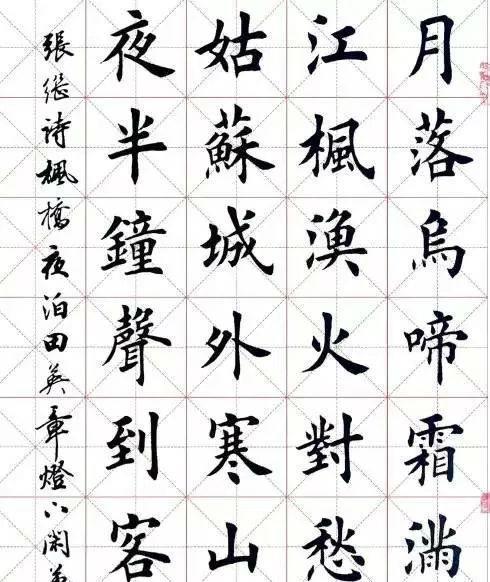 月落烏啼霜滿
江楓漁火對愁
姑蘇城外寒山
夜半鐘聲到客
張继诗楓橋夜泊田英章燈下闲